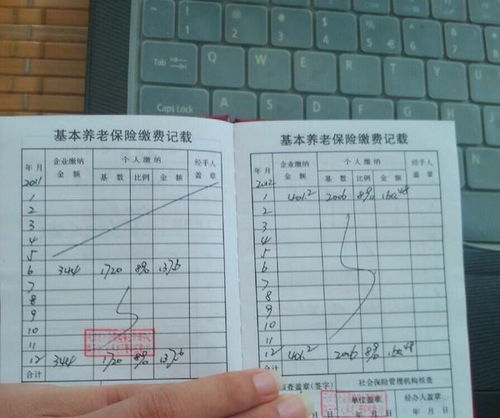 Tab
Caps Lock
Q
W
E
A
S
D
基本养老保险缴费记载
年月
企业缴纳
金额
个人缴纳
基数
比例
金额
经手人
盖章
2011
1
2
3
4
5
6 344 1720 8% 137.6
7
8
9
10
11
12 344 1720 8% 137.6
合计
基本养老保险缴费记载
年月
企业缴纳
金额
个人缴纳
基数
比例
金额
经手人
盖章
2012
1 401.2 2006 8% 160.48
2
3
4
5
6
7
8
9
10
11
12 401.2 2006 8% 160.48
合计
核查盖章(签字)
社会保险管理机构核查
单位盖章
经办人盖章